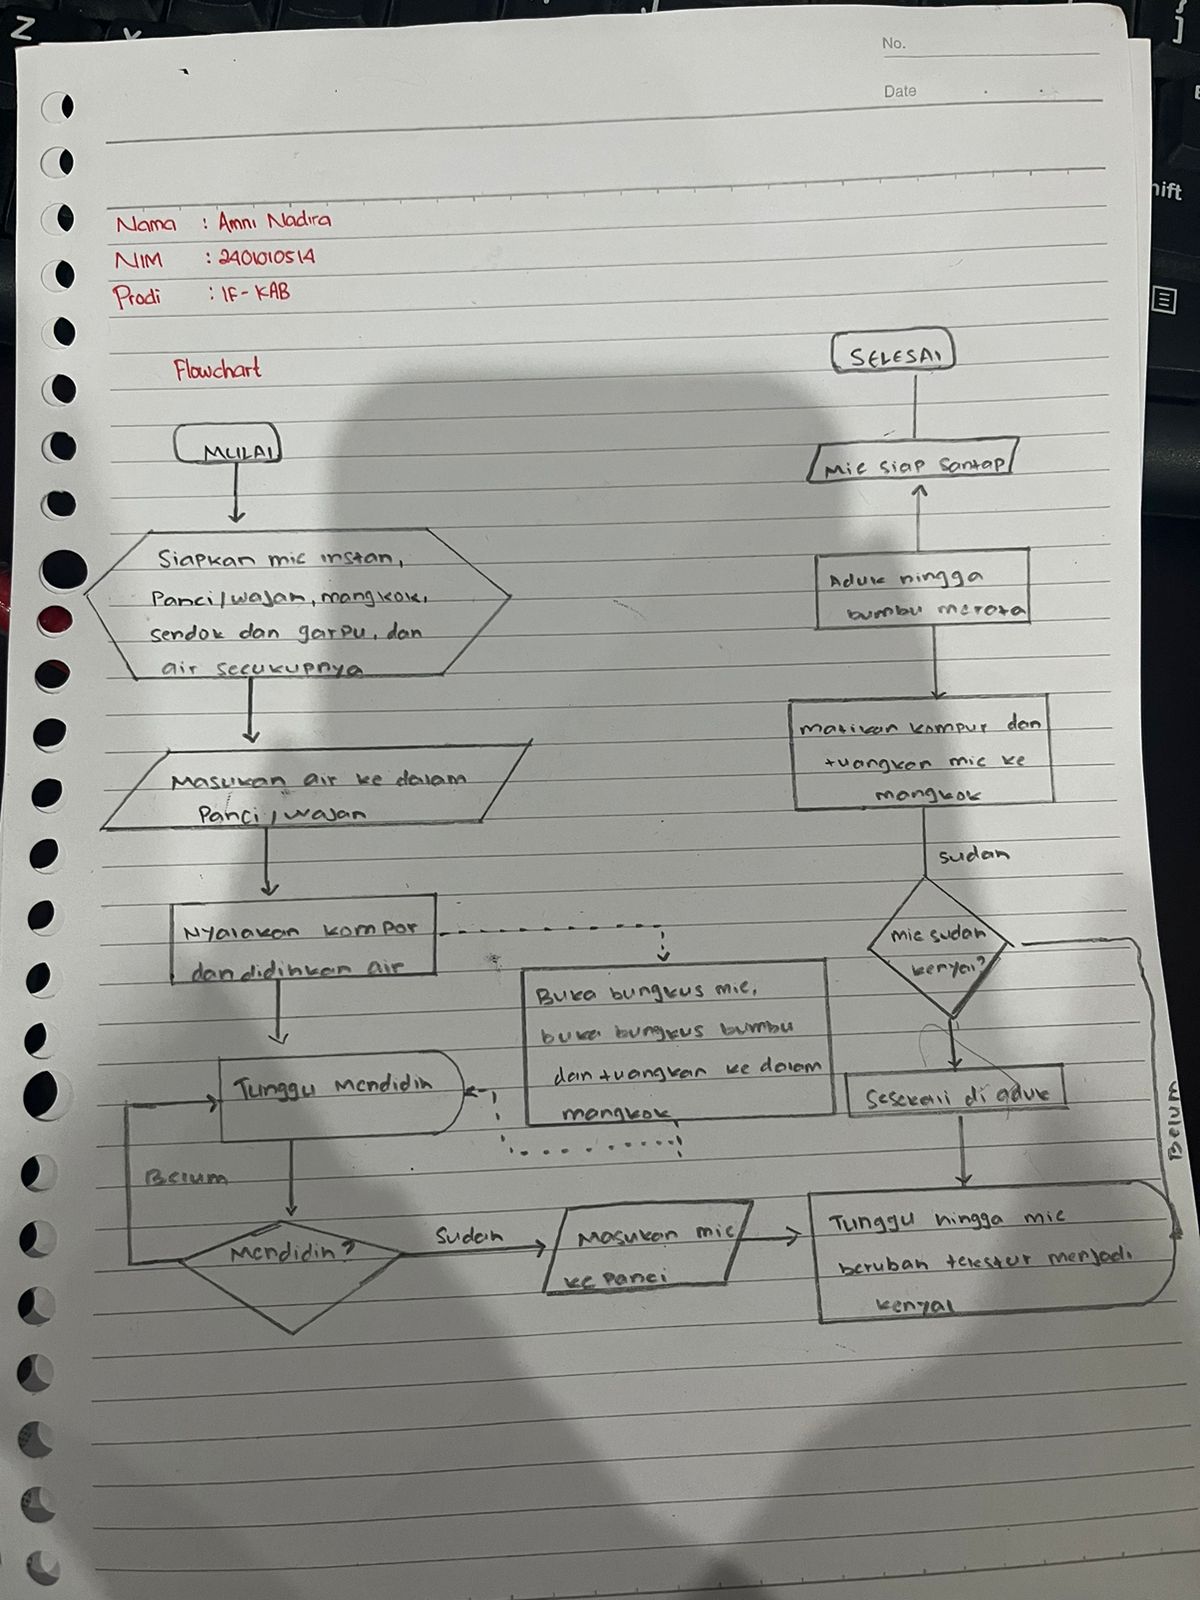 No.
Date
Nama : Amni Nadira
NIM : 2401010514
Prodi : IF-KAB
Flowchart
MULAI
Siapkan mie instan,
Panci/wajan, mangkok,
sendok dan garpu, dan
air secukupnya
Masukan air ke dalam
Panci/wajan
Nyalakan kompor
dan didihkan air
Buka bungkus mie,
buka bungkus bumbu
dan tuangkan ke dalam
mangkok
Tunggu Mendidih
Belum
Mendidih?
Sudah
Masukan mie
ke panci
Tunggu hingga mie
berubah tekstur menjadi
kenyal
Sesekali di aduk
mie sudah
kenyal?
Belum
sudah
Matikan kompor dan
tuangkan mie ke
mangkok
Aduk hingga
bumbu merata
Mie siap santap
SELESAI
Z
]
hift